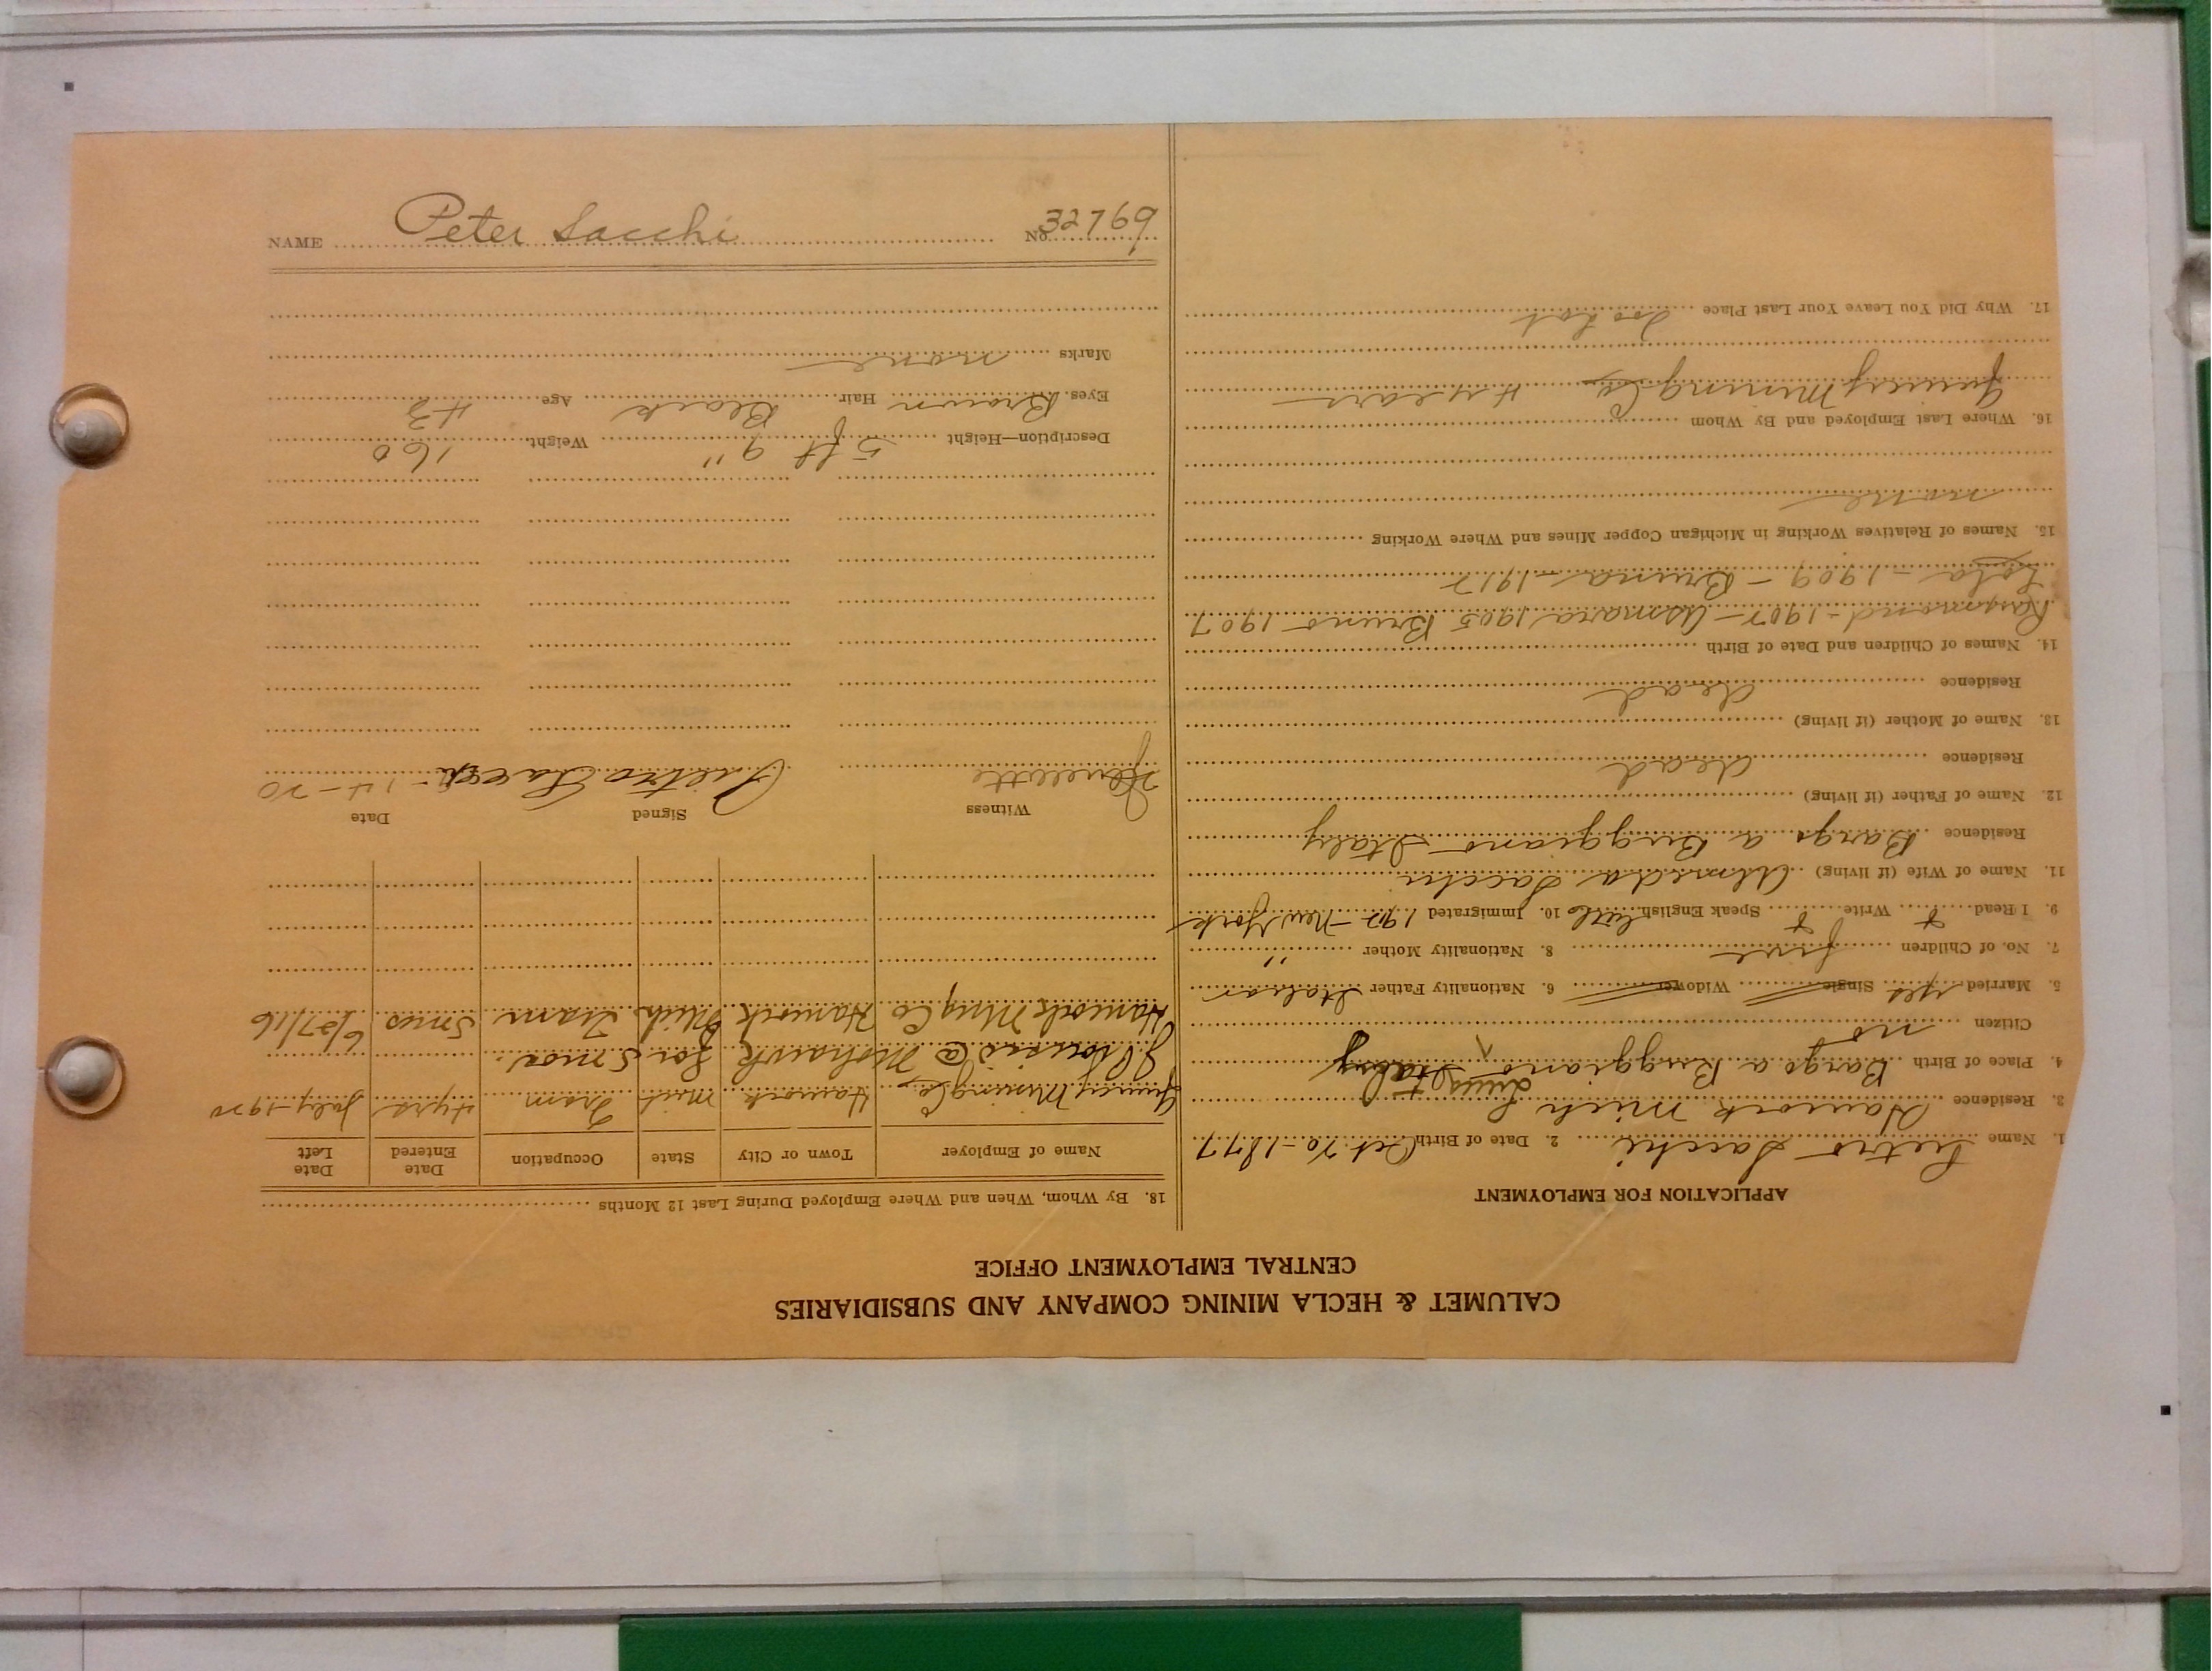 CALUMET & HECLA MINING COMPANY AND SUBSIDIARIES
CENTRAL EMPLOYMENT OFFICE
APPLICATION FOR EMPLOYMENT
1. Name Pietro Sacchi 2. Date of Birth Oct. 20-1877
3. Residence Hancock Mich
4. Place of Birth Borgo a Buggiano Italy
Citizen no
5. Married yes Single Widower 6. Nationality Father Italian
7. No. of Children five 8. Nationality Mother "
9. I Read Write Speak English little 10. Immigrated New York
11. Name of Wife (if living) Sacchi
Residence Borgo a Buggiano Italy
12. Name of Father (if living)
Residence dead
13. Name of Mother (if living)
Residence dead
14. Names of Children and Date of Birth
Raymond - Asmara 1905 Bruno 1907
1909 - Bruna
15. Names of Relatives Working in Michigan Copper Mines and Where Working
none
16. Where Last Employed and By Whom
Quincy Mining Co 4 years
17. Why Did You Leave Your Last Place Too hot
18. By Whom, When and Where Employed During Last 12 Months
Name of Employer Town or City State Occupation Date Entered Date Left
Quincy Mining Co Hancock Mich Tram 4 yrs July-1920
@ Mohawk for 5 mos.
Hancock Mng Co Hancock Mich Tram 5 mos 6/27/16
Witness Signed Date
Pietro Sacchi
Description—Height 5 ft 9" Weight 160
Eyes Brown Hair Black Age 43
Marks none
NAME Peter Sacchi No. 32769